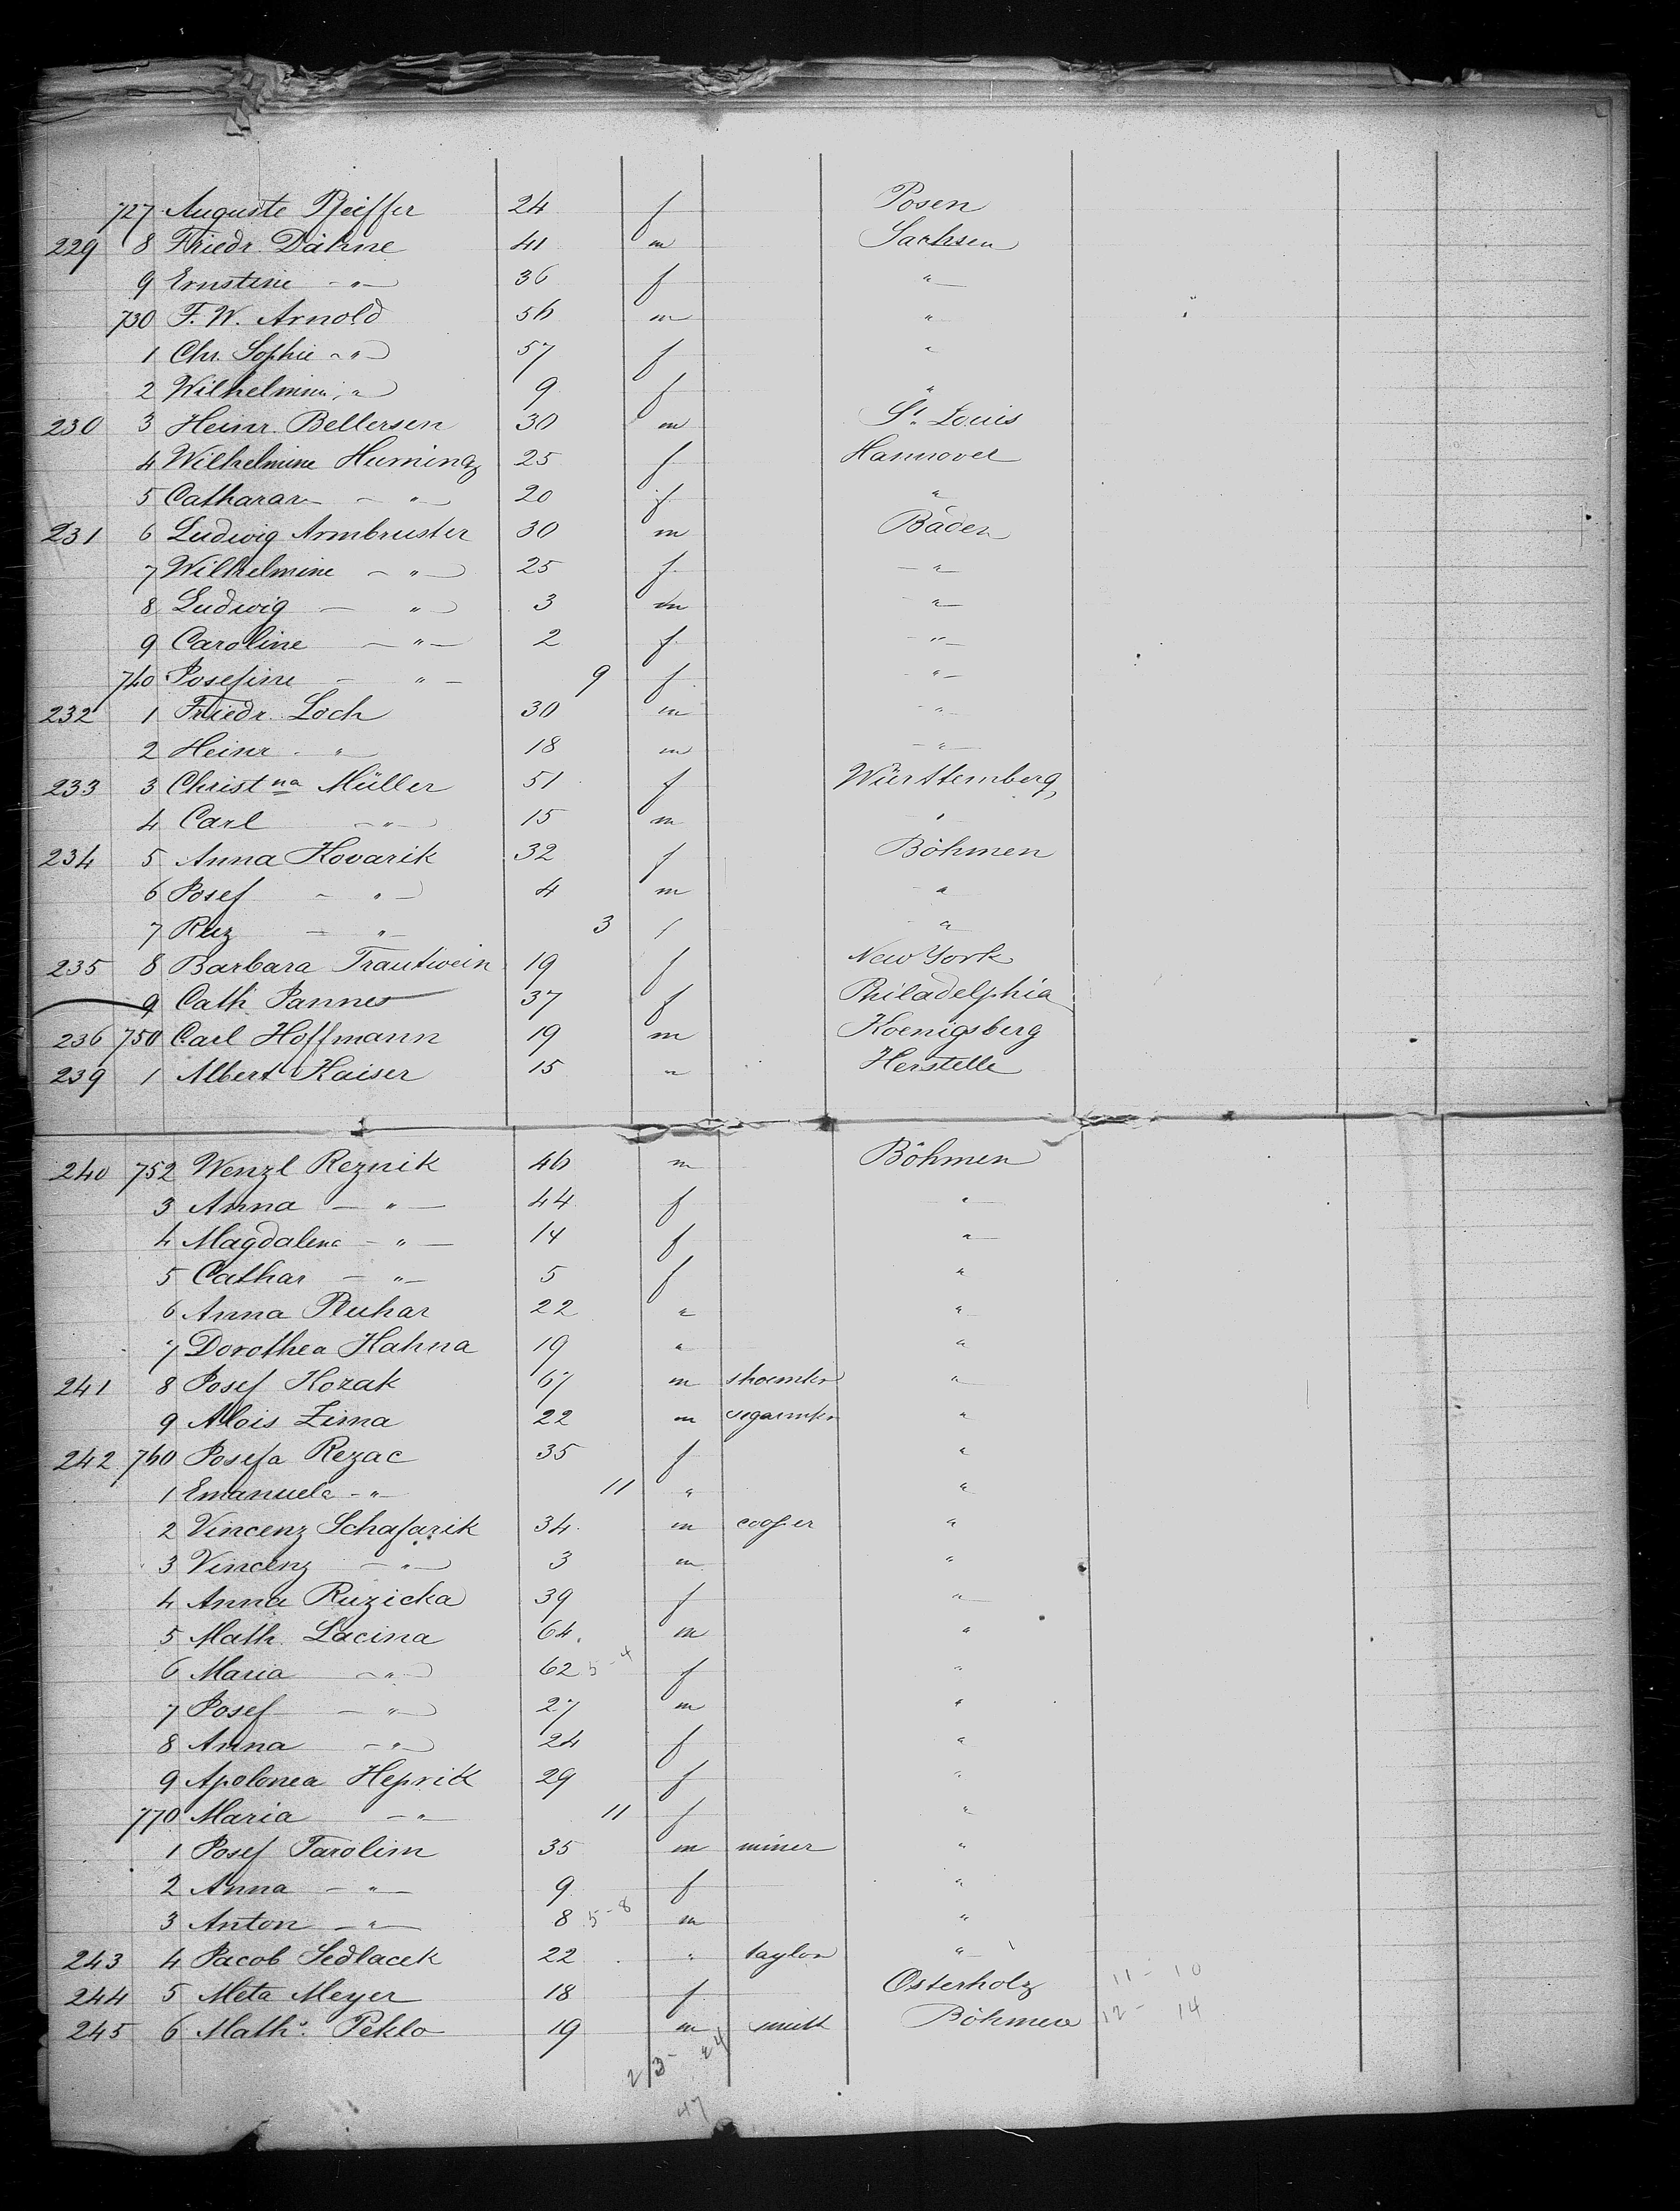 727 Auguste Pfeiffer 24 f Posen
229 8 Friedr. Dähne 41 m Sachsen
9 Ernstine - " - 36 f "
730 F. W. Arnold 56 m "
1 Chr. Sophie - " - 57 f "
2 Wilhelmine " 9 f "
230 3 Heinr. Bellersen 30 m St. Louis
4 Wilhelmine Huming 25 f Hannover
5 Cathar - " - 20 f "
231 6 Ludwig Armbruster 30 m Baden
7 Wilhelmine - " - 25 f. - " -
8 Ludwig - " - 3 m - " -
9 Caroline - " - 2 f. - " -
740 Josefine - " - 9 f. - " -
232 1 Friedr. Loch 30 m - " -
2 Heinr. - " - 18 m - " -
233 3 Christna Müller 51 f Württemberg
4 Carl - " - 15 m "
234 5 Anna Kovarik 32 f Böhmen
6 Josef - " - 4 m - "
7 - " - 3 f "
235 8 Barbara Trautwein 19 f New York
9 Cath. Pannes 37 f Philadelphia
236 750 Carl Hoffmann 19 m Koenigsberg
239 1 Albert Kaiser 15 " Herstelle
240 752 Wenzl Reznik 46 m Böhmen
3 Anna - " - 44 f "
4 Magdalena - " - 14 f "
5 Cathar - " - 5 f "
6 Anna 22 " "
7 Dorothea Hahna 19 " "
241 8 Josef Kozak 67 m shoemkr "
9 Alois Zima 22 m segarmkr "
242 760 Josefa Rezac 35 f "
1 Emanuela - " - 11 " "
2 Vincenz Schafarik 34 m cooper "
3 Vincenz - " - 3 m "
4 Anna Ruzicka 39 f "
5 Math. Lacina 64 m "
6 Maria - " - 62 5-4 f "
7 Josef - " - 27 m "
8 Anna - " - 24 f "
9 Apolonea 29 f "
770 Maria - " - 11 f "
1 Josef Tarolim 35 m miner "
2 Anna - " - 9 f "
3 Anton - " - 8 5-8 m "
243 4 Jacob Sedlacek 22 " taylor "
244 5 Meta Meyer 18 f Osterholz 11 - 10
245 6 Maths. Peklo 19 m smith Böhmen 12 - 14
23 - 24
47